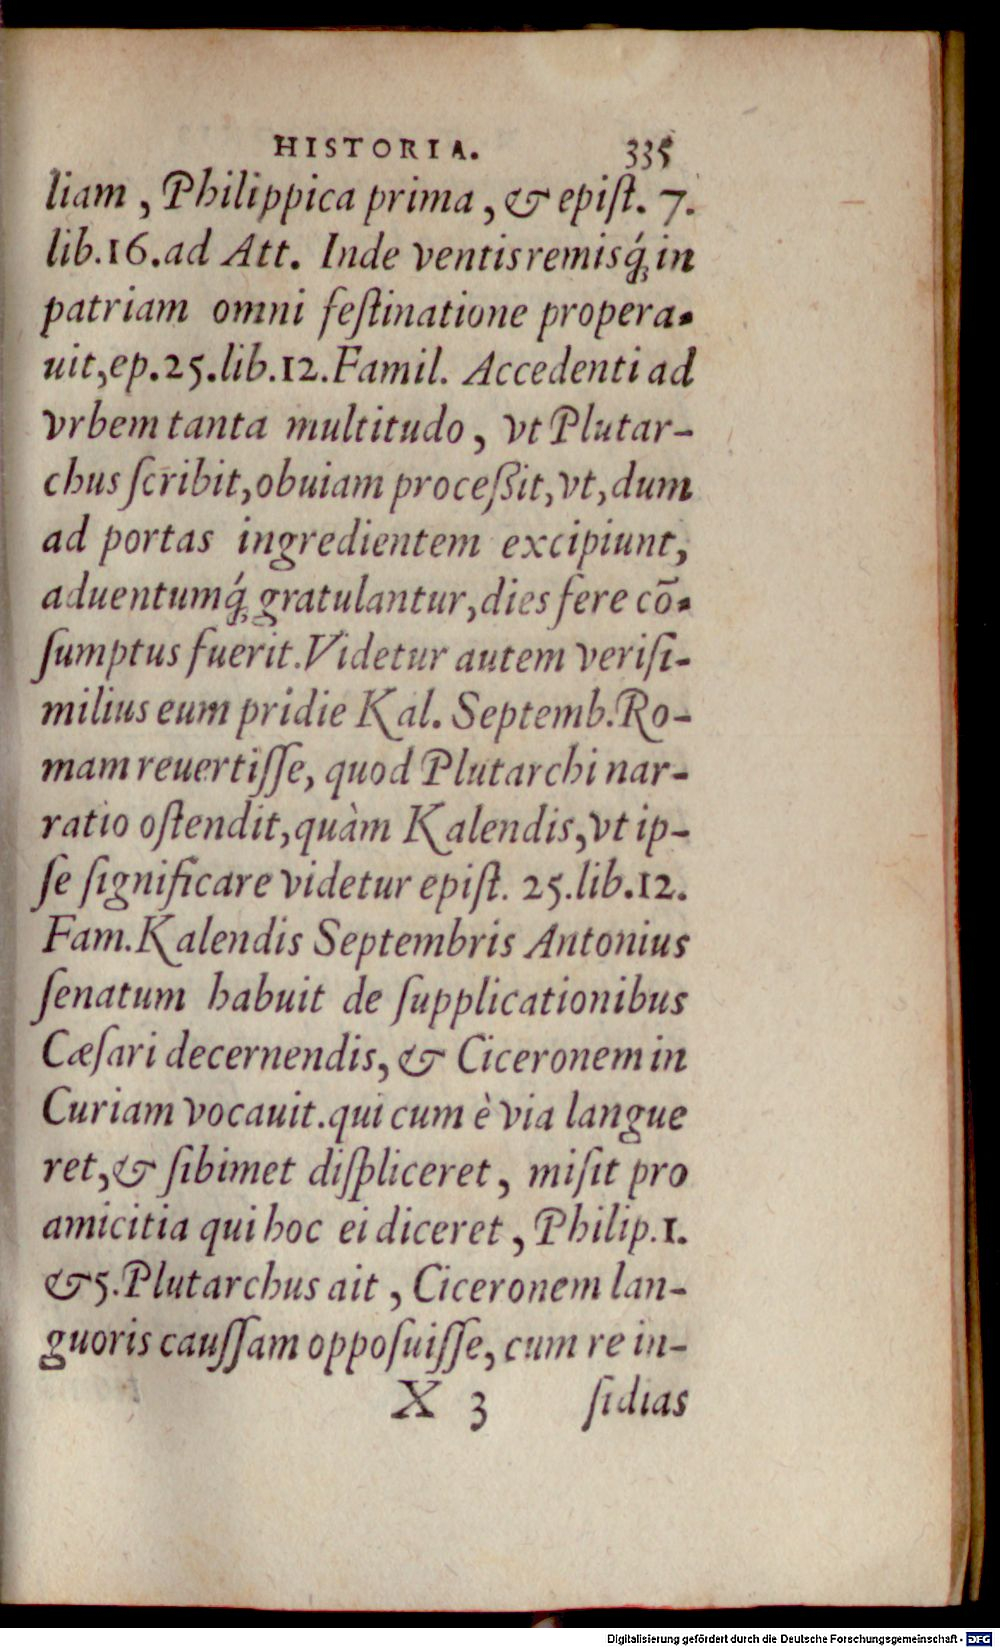 HISTORIA. 335
liam, Philippica prima, & epiſt. 7.
lib.16.ad Att. Inde ventis remisq́; in
patriam omni feſtinatione propera-
uit,ep.25.lib.12.Famil. Accedenti ad
vrbem tanta multitudo, vt Plutar-
chus ſcribit,obuiam proceßit,vt,dum
ad portas ingredientem excipiunt,
aduentumq́; gratulantur,dies fere cō-
ſumptus fuerit.Videtur autem veriſi-
milius eum pridie Kal. Septemb.Ro-
mam reuertiſſe, quod Plutarchi nar-
ratio oſtendit,quàm Kalendis,vt ip-
ſe ſignificare videtur epiſt. 25.lib.12.
Fam.Kalendis Septembris Antonius
ſenatum habuit de ſupplicationibus
Cæſari decernendis, & Ciceronem in
Curiam vocauit.qui cum è via langue
ret,& ſibimet diſpliceret, miſit pro
amicitia qui hoc ei diceret, Philip.1.
&5.Plutarchus ait, Ciceronem lan-
guoris cauſſam oppoſuiſſe, cum re in-
X 3 ſidias
Digitalisierung gefördert durch die Deutsche Forschungsgemeinschaft - DFG